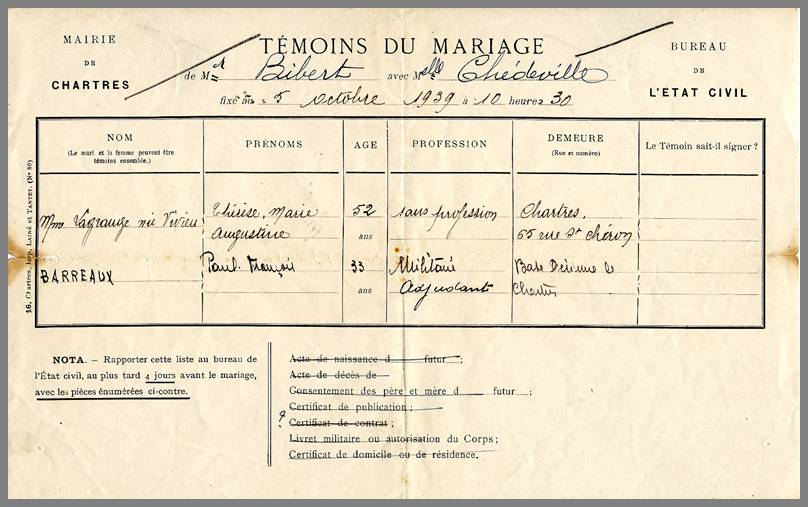 MAIRIE
DE
CHARTRES
TÉMOINS DU MARIAGE
de Mr Bibert avec Melle Chédeville
fixé au 5 octobre 1939 à 10 heures 30
BUREAU
DE
L'ÉTAT CIVIL
NOM
(Le mari et la femme peuvent être
témoins ensemble.)
PRÉNOMS
AGE
PROFESSION
DEMEURE
(Rue et numéro)
Le Témoin sait-il signer ?
Mme Lagrange née Vivien
Thérèse, Marie
Augustine
52
ans
sans profession
Chartres,
55 rue St Chéron
BARREAUX
Paul François
33
ans
Militaire
Adjudant
Base Aérienne de
Chartres
16. Chartres, Imp. LAINÉ et TANTET. (N° 80)
NOTA. — Rapporter cette liste au bureau de
l'État civil, au plus tard 4 jours avant le mariage,
avec les pièces énumérées ci-contre.
Acte de naissance d futur ;
Acte de décès de
Consentement des père et mère d futur ;
Certificat de publication ;
? Certificat de contrat ;
Livret militaire ou autorisation du Corps ;
Certificat de domicile ou de résidence.